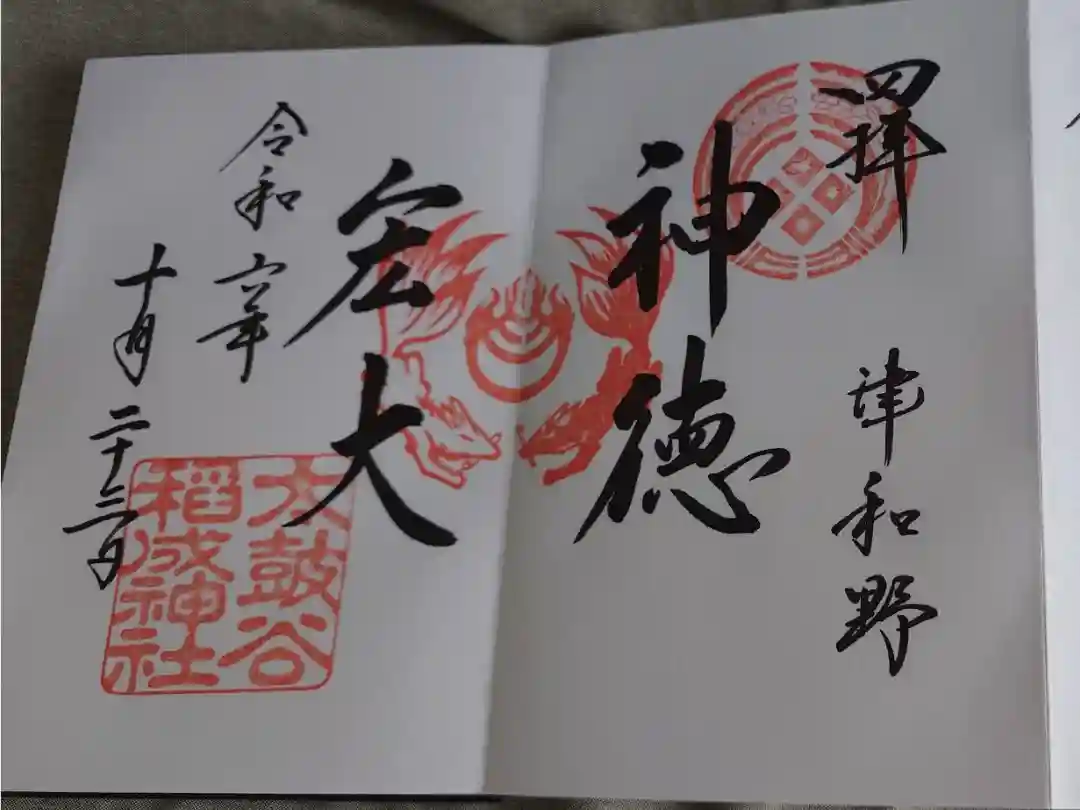 四拝
津和野
神徳
宏大
令和六年
十月二十三日
太鼓谷
稲成神社